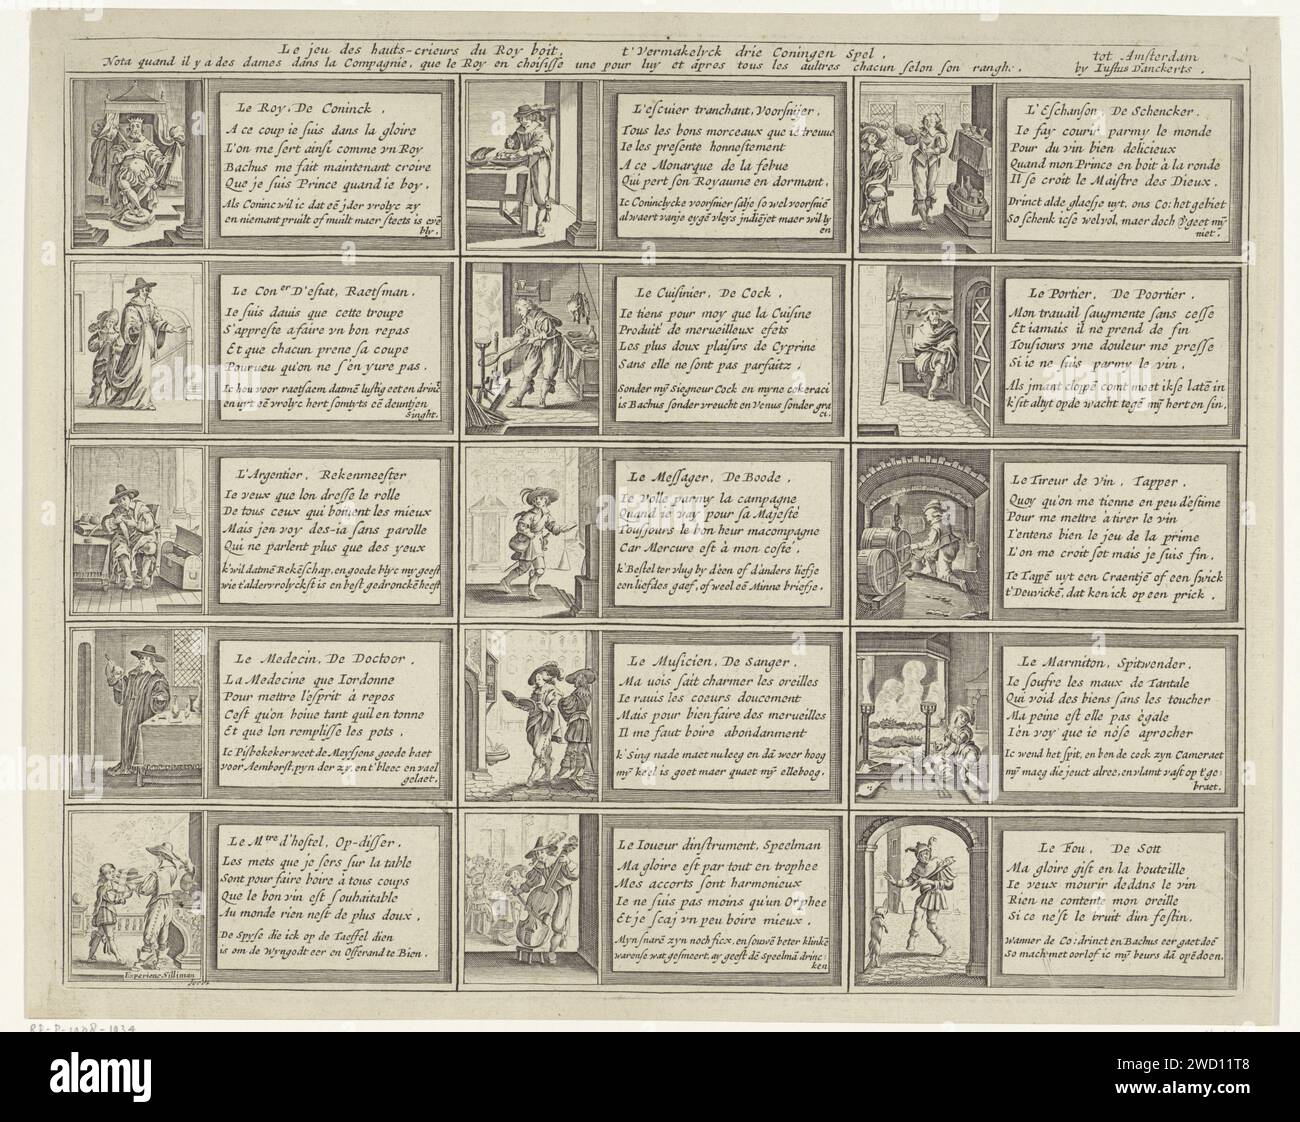 Le jeu des hauts-crieurs du Roy boit, t'Vermakelyck drie Coningen Spel.
Nota quand il y a des dames dans la Compagnie, que le Roy en choisisse une pour luy et apres tous les aultres chacun selon son rangh.
tot Amsterdam
by Iustus Danckerts.
Le Roy, De Coninck.
A ce coup ie suis dans la gloire
L'on me sert ainsi comme vn Roy
Bachus me fait maintenant croire
Que je suis Prince quand ie boy.
Als Coninc wil ic dat eē jder vrolyc zy
en niemant pruilt of muilt maer steets is
bly.
L'escuier tranchant, Voorsnijer.
Tous les bons morceaux que ie treuue
Ie les presente honnestement
A ce Monarque de la febue
Qui pert son Royaume en dormant.
Ic Coninclycke voorsnier salje so wel voorsniē
al waert vanje eygē vleys jndiējet maer wil ly
en
L'Eschanson De Schencker.
Ie fay courir parmy le monde
Pour du vin bien delicieux
Quand mon Prince en boit à la ronde
Il se croit le Maistre des Dieux.
Drinct alde glaesje uyt, ons Co: het gebiet
So schenk icse wel vol, maer doch geet mȳ
niet.
Le Con^er D'estat, Raetsman.
Ie suis dauis que cette troupe
S'appreste a faire vn bon repas
Et que chacun prene sa coupe
Pourueu qu'on ne s'en yure pas.
Ic hou voor raetsaem datmē lustig eet en drinct
en uyt eē vrolyc hert somtyts eē deuntjen
singht.
Le Cuisinier, De Cock.
Ie tiens pour moy que la Cuisine
Produit de merueilleux efets
Les plus doux plaisirs de Cyprine
Sans elle ne sont pas parfaitz,
Sonder mȳ Siegneur Cock en myne cokeraci
is Bachus sonder vreucht en Venus sonder gra
ci.
Le Portier, De Poortier.
Mon trauail saugmente sans cesse
Et iamais il ne prend de fin
Tousiours vne douleur me presse
Si ie ne suis parmy le vin.
Als jmant cloppē comt moet ikse latē in
k'sit altyt op de wacht tegē mȳ hert en sin.
L'Argentier, Rekenmeester
Ie veux que lon dresse le rolle
De tous ceux qui boiuent les mieux
Mais jen voy des-ia sans parolle
Qui ne parlent plus que des yeux
k'wil datmē Rekēschap, en goede blyc my geeft
wie t'aldervrolyckste is en best gedronckē heeft
Le Messager, De Boode.
Ie Volle parmy la campagne
Quand ie vay pour sa Majesté
Tousjours le bon heur macompagne
Car Mercure est à mon costé.
k'Bestel ter vlug by dēen of d'anders liefje
een liefdes gaef, of weel eē Minne briefje.
Le Tireur de Vin, Tapper.
Quoy qu'on me tienne en peu d'estime
Pour me mettre à tirer le vin
I'entens bien le jeu de la prime
L'on me croit sot mais je suis fin.
Te Tappē uyt een Craentje of een swick
t'Deuvickē, dat ken ick op een prick.
Le Medecin, De Doctoor.
La Medecine que Iordonne
Pour mettre l'esprit à repos
Cest qu'on boiue tant quil en tonne
Et que lon remplisse les pots.
Ic Pisbekeker weet de Meyssens goede baet
voor Aemborst, pyn der zy, en t'bleec en vael
gelaet.
Le Musicien, De Sanger.
Ma vois sait charmer les oreilles
Ie rauis les coeurs doucement
Mais pour bien faire des merueilles
Il me faut boire abondanment
k'Sing nade maet nu leeg en dā weer hoog
mȳ keel is goet maer quaet mȳ elleboog.
Le Marmiton, Spitwender.
Ie soufre les maux de Tantale
Qui void des biens sans les toucher
Ma peine est elle pas égale
I'en voy que ie nóse aprocher
Ic wend het spit, en ben de cock zyn Cameraet
mȳ maeg die jeuct alree, en vlamt vast op t'ge:
braet.
Le M^tre d'hostel, Op-disser.
Les mets que je sers sur la table
Sont pour faire boire à tous coups
Que le bon vin est souhaitable
Au monde rien nest de plus doux.
De Spyse die ick op de Taeffel dien
is om de Wyngodt eer en Offerand te Bien.
Experiens Silliman
fecit
Le Ioueur dinstrument, Speelman
Ma gloire est par tout en trophee
Mes accorts sont harmonieux
Ie ne suis pas moins qu'un Orphee
Et je scaj vn peu boire mieux.
Myn snarē zyn noch ficx, en souwē beter klinkē
warense wat gesmeert, ay geeft dē Speelmā drinc:
ken
Le Fou, De Sott
Ma gloire gist en la bouteille
Ie veux mourir dedans le vin
Rien ne contente mon oreille
Si ce nest le bruit dun festin.
wanner de Co: drinct en Bachus eer gaet doē
So mach met oorlof ic mȳ beurs dā opēdoen.
RP-P-1908-1934
alamy
Image ID: 2WD11T8
www.alamy.com